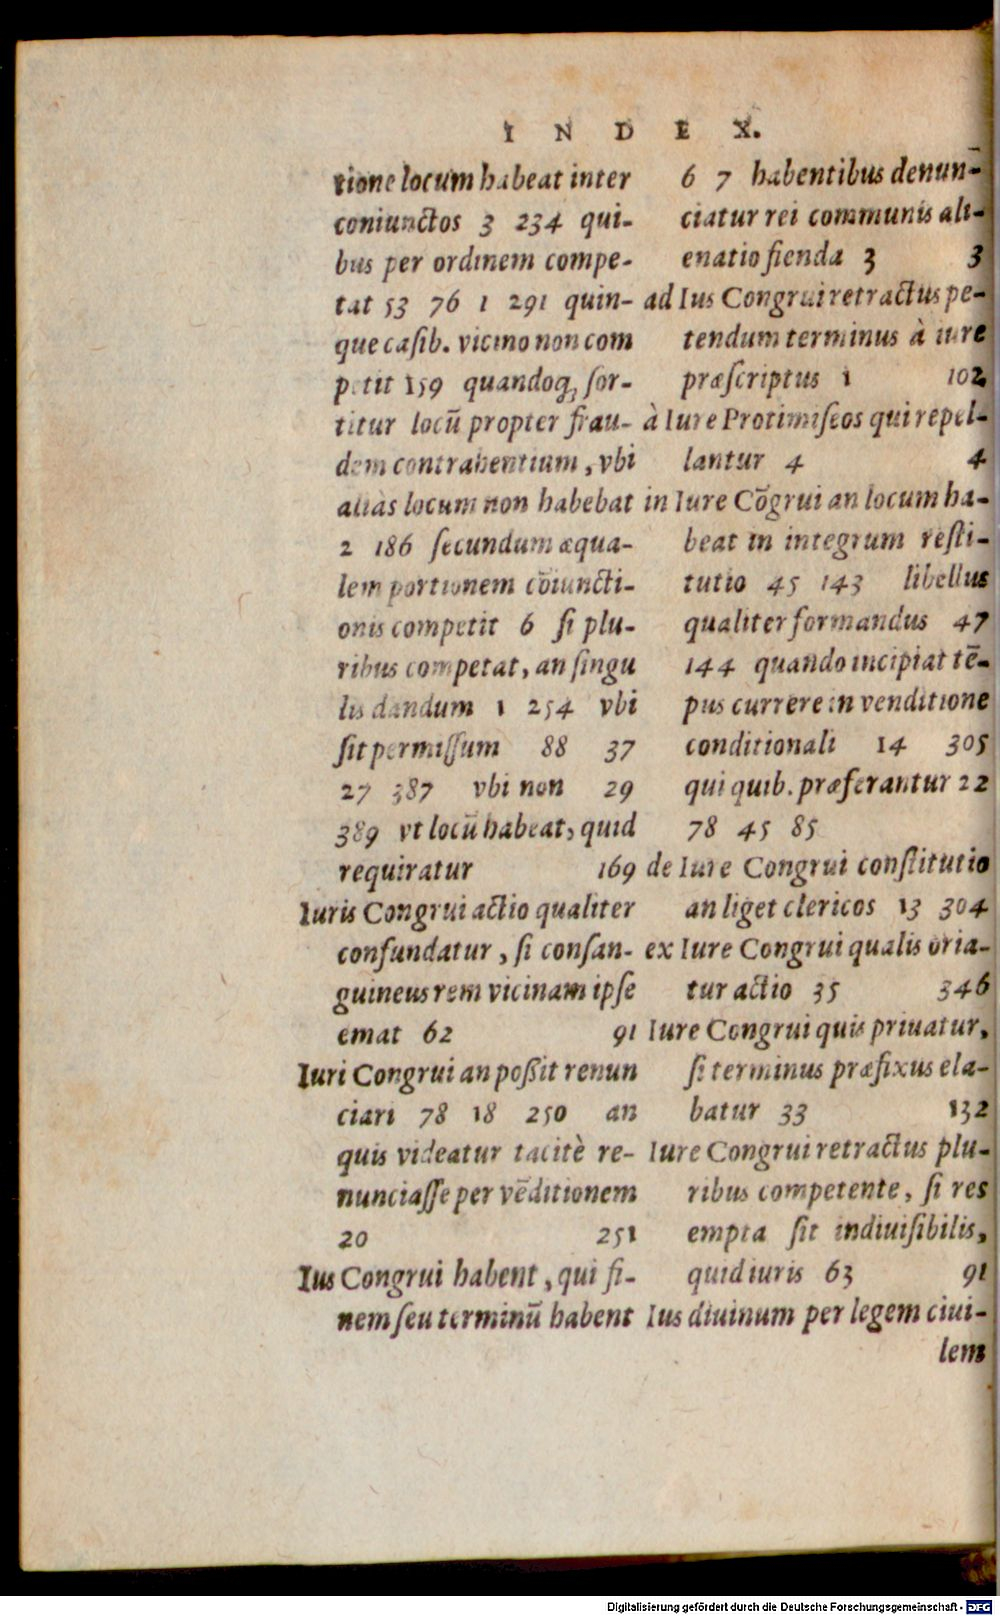 INDEX.
tione locum habeat inter
coniunctos 3 234 qui-
bus per ordinem compe-
tat 53 76 1 291 quin-
que casib. vicino non com
petit 159 quandoq; sor-
titur locū propter frau-
dem contrahentium, vbi
aliàs locum non habebat
2 186 secundum æqua-
lem portionem cōiuncti-
onis competit 6 si plu-
ribus competat, an singu
lis dandum 1 254 vbi
sit permissum 88 37
27 387 vbi non 29
389 vt locū habeat, quid
requiratur 169
Iuris Congrui actio qualiter
confundatur, si consan-
guineus rem vicinam ipse
emat 62 91
Iuri Congrui an possit renun
ciari 78 18 250 an
quis videatur tacitè re-
nunciasse per vēditionem
20 251
Ius Congrui habent, qui fi-
nem seu terminū habent
6 7 habentibus denun-
ciatur rei communis ali-
enatio fienda 3 3
ad Ius Congrui retractus pe-
tendum terminus à iure
præscriptus 1 102
à Iure Protimiseos qui repel-
lantur 4 4
in Iure Cōgrui an locum ha-
beat in integrum resti-
tutio 45 143 libellus
qualiter formandus 47
144 quando incipiat tē-
pus currere in venditione
conditionali 14 305
qui quib. præferantur 22
78 45 85
de Iure Congrui constitutio
an liget clericos 13 304
ex Iure Congrui qualis oria-
tur actio 35 346
Iure Congrui quis priuatur,
si terminus præfixus ela-
batur 33 132
Iure Congrui retractus plu-
ribus competente, si res
empta sit indiuisibilis,
quid iuris 63 91
Ius diuinum per legem ciui-
lem
Digitalisierung gefördert durch die Deutsche Forschungsgemeinschaft - DFG